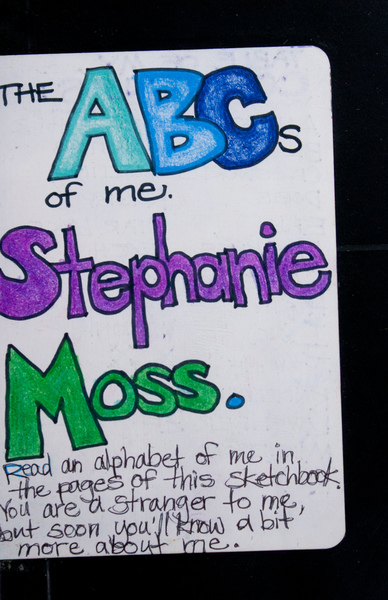 THE ABCs
of me.
Stephanie
Moss.
Read an alphabet of me in
the pages of this sketchbook.
You are a stranger to me,
but soon you'll know a bit
more about me.